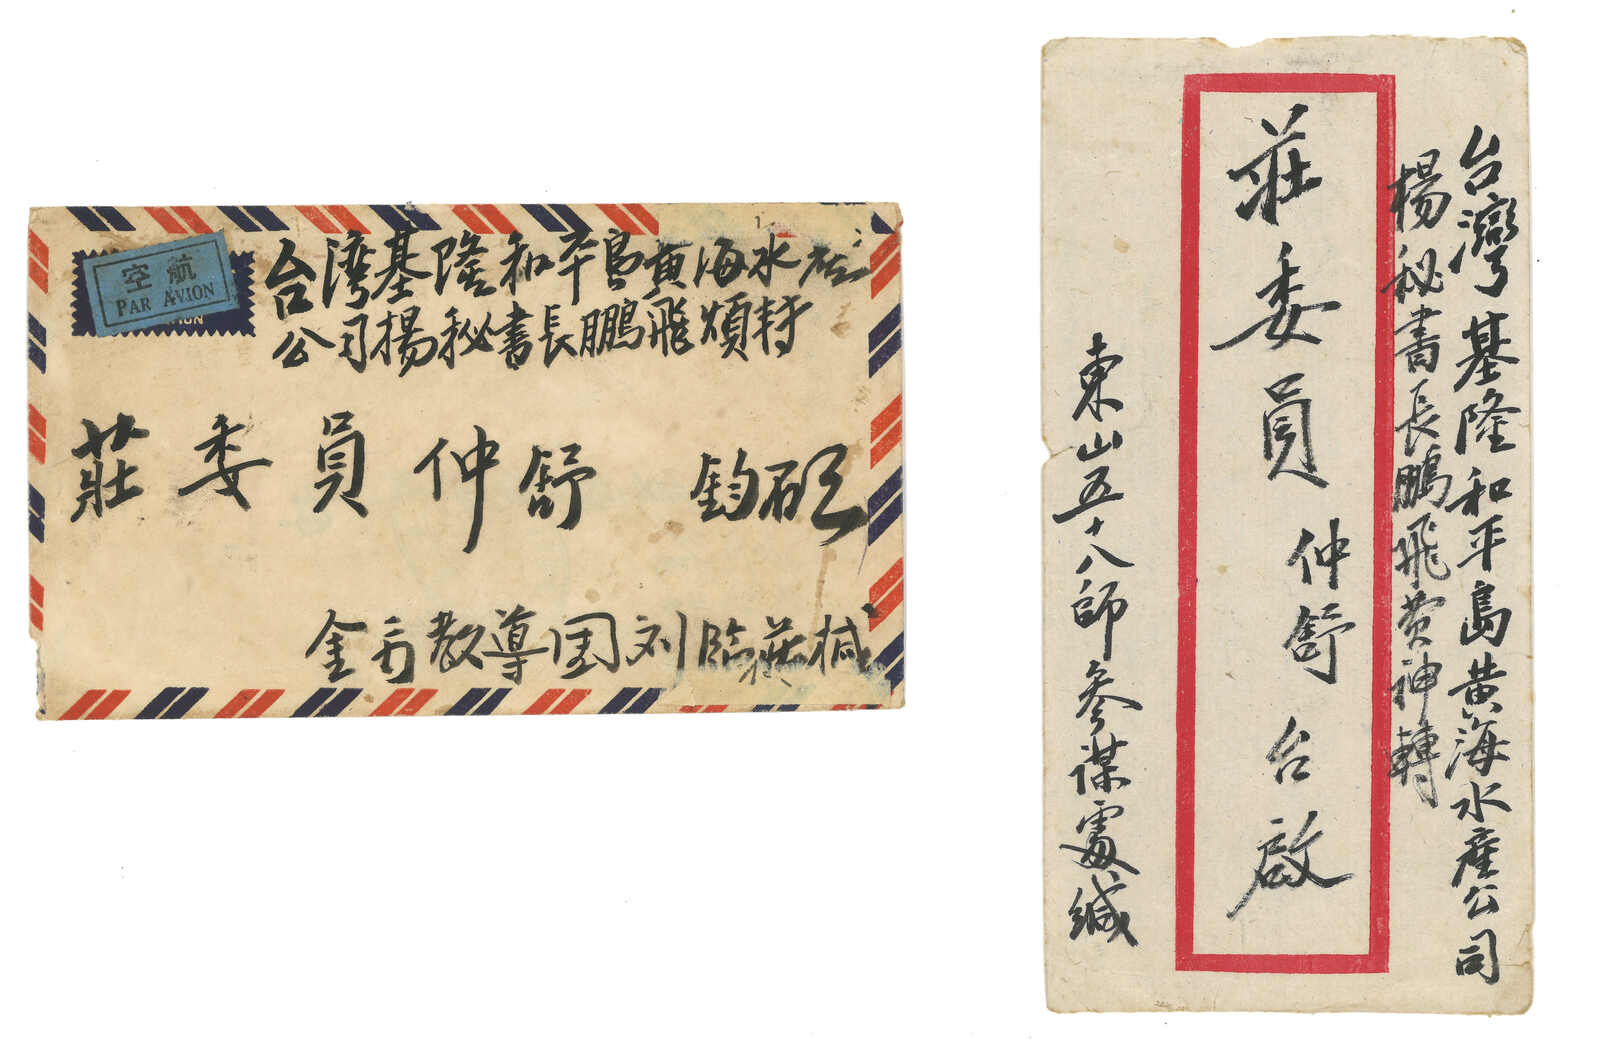 航空
PAR AVION
台灣基隆和平島黃海水產
公司楊秘書長鵬飛煩轉
莊委員仲舒 鈞啟
金方教導團刘臨莊椷
台灣基隆和平島黃海水產公司
楊秘書長鵬飛費神轉
莊委員仲舒台啟
東山五十八師參謀處緘